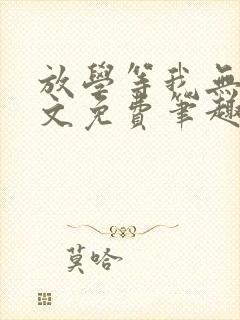 放學等我無
文免費筆趣
莫哈